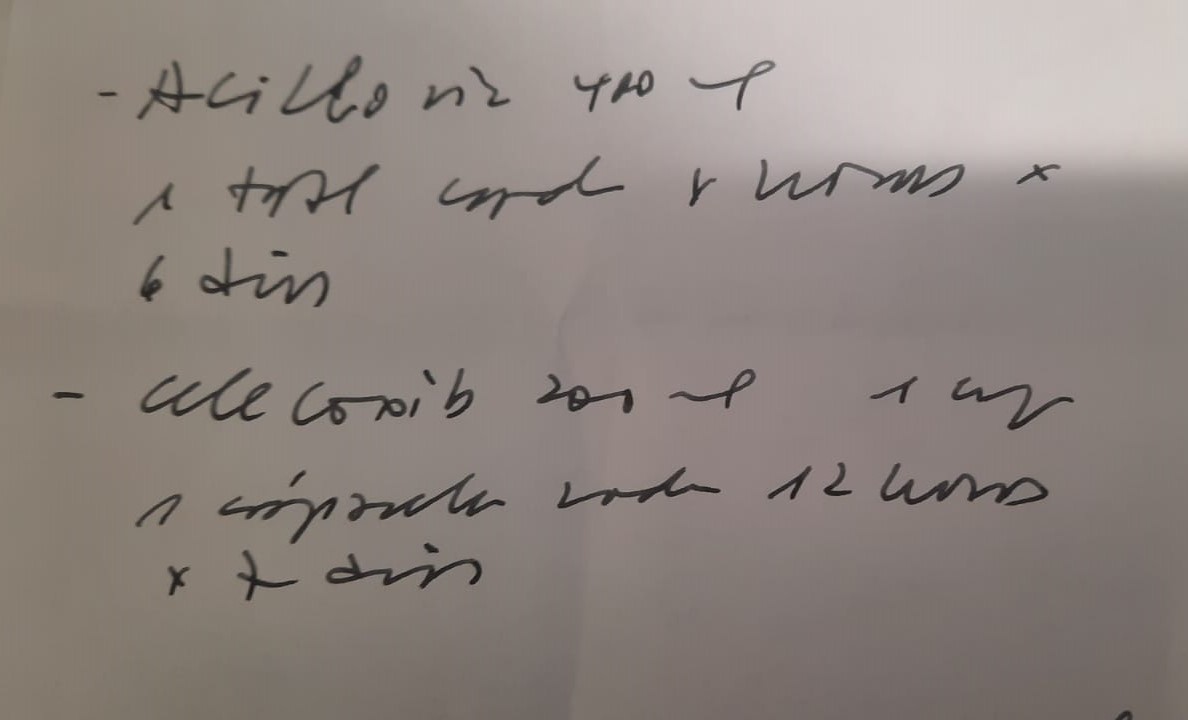 - Aciclovir 400 mg
1 tabl cada 8 horas x
6 días
- Celecoxib 200 mg 1 cap
1 cápsula cada 12 horas
x 7 días